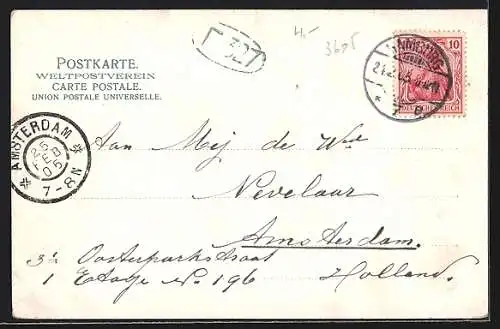 POSTKARTE.
WELTPOSTVEREIN
CARTE POSTALE.
UNION POSTALE UNIVERSELLE.
10
DEUTSCHES REICH
HAMBURG
* 7 B.
AMSTERDAM
25
FEB
05
7-8N
Aan Mej de Wed
Nevelaar
Amsterdam.
Oosterparkstraat
1 Etage No 196
Holland.